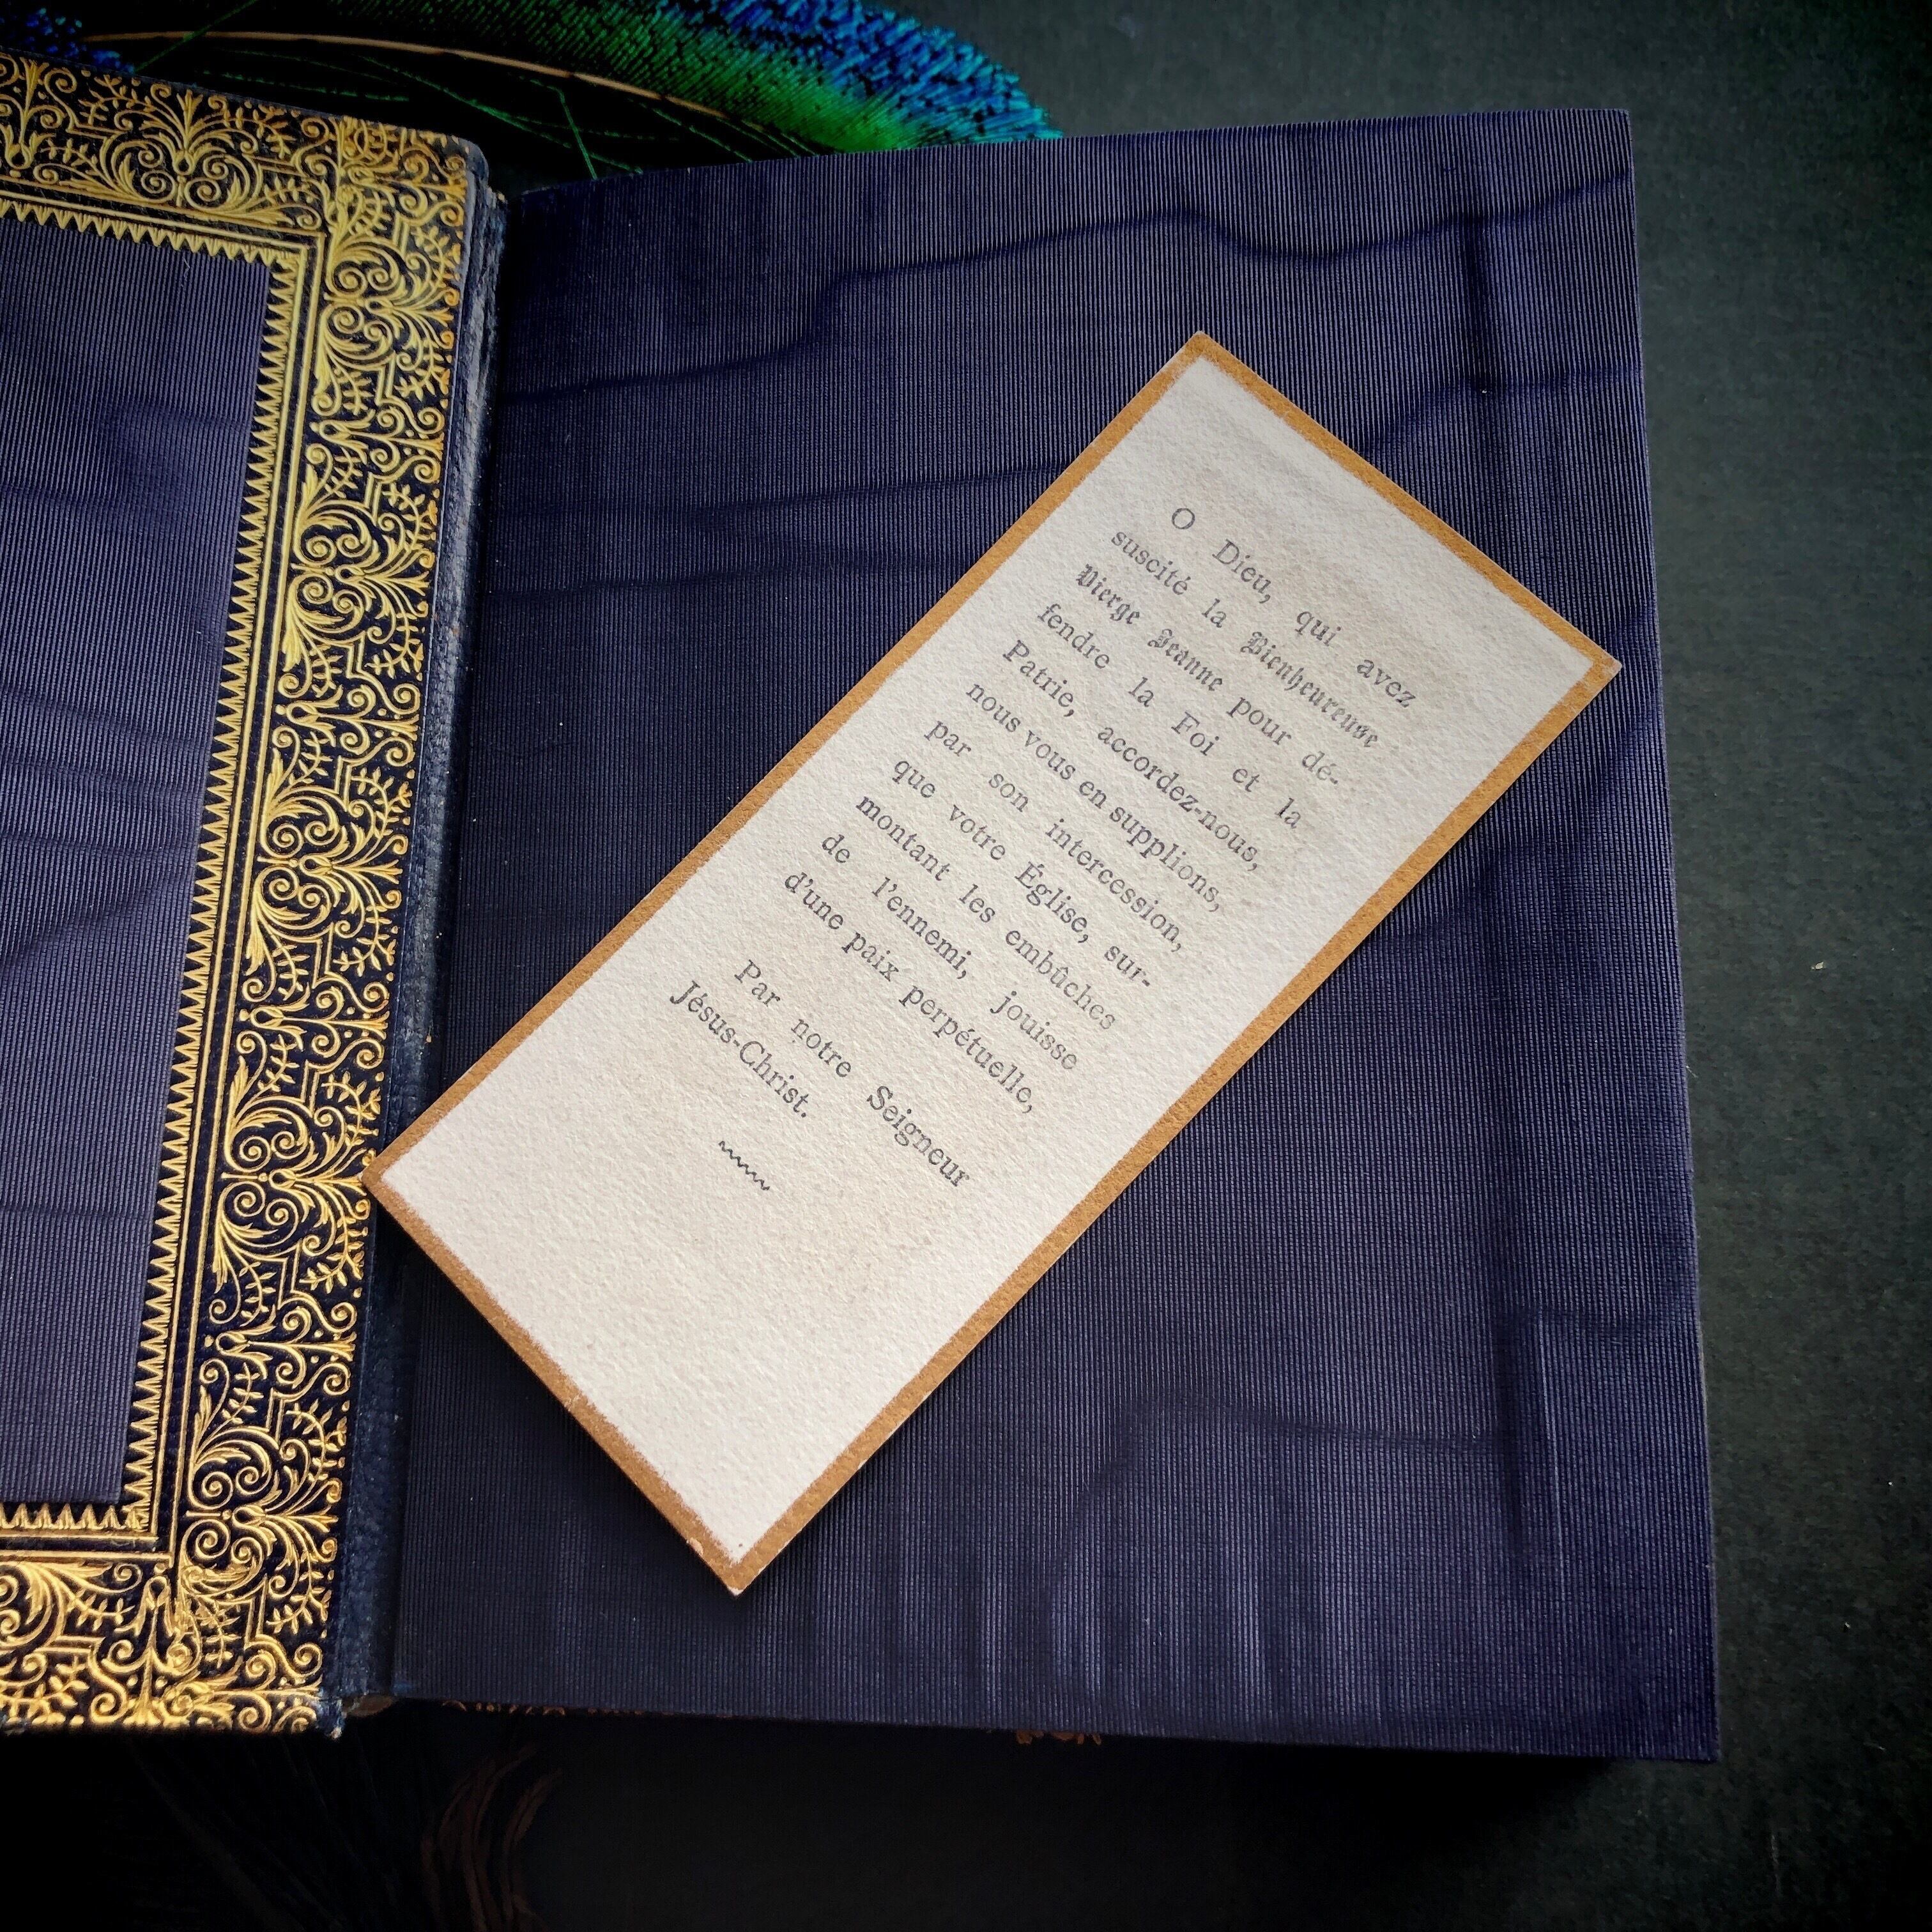 O Dieu, qui avez
suscité la Bienheureuse
Vierge Jeanne pour dé-
fendre la Foi et la
Patrie, accordez-nous,
nous vous en supplions,
par son intercession,
que votre Église, sur-
montant les embûches
de l'ennemi, jouisse
d'une paix perpétuelle,
Par notre Seigneur
Jésus-Christ.